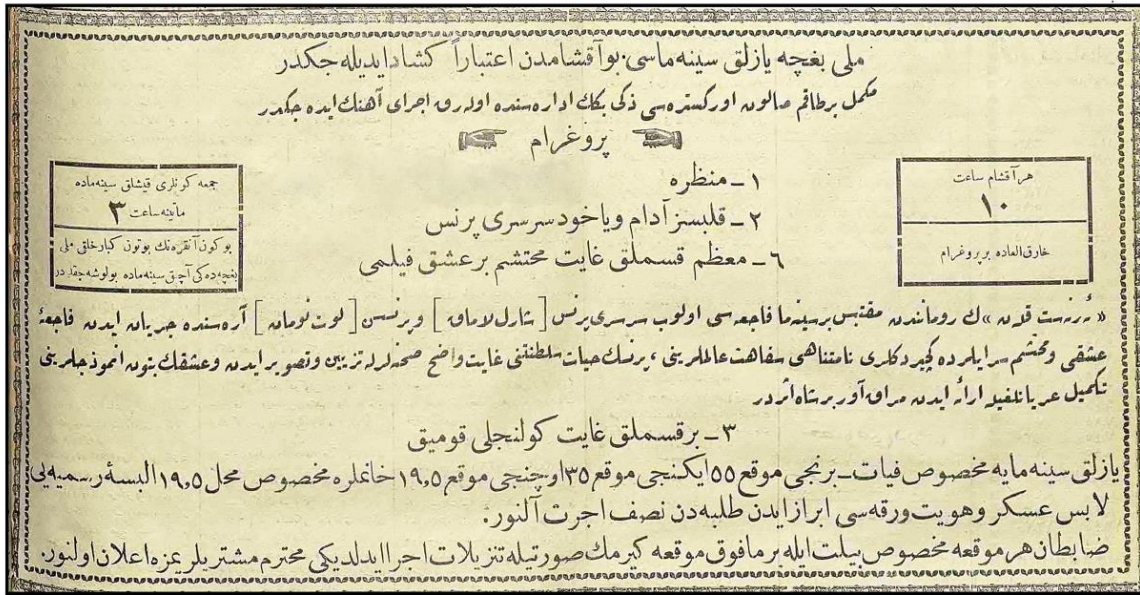 ملی بغچه یازلق سینه‌ماسی. بو آقشامدن اعتباراً کشاد ایدیله‌جکدر
مکمل بر طاقم صالون اورکستره‌سی ذکی بکك اداره‌سنده اوله‌رق اجرای آهنك ایده‌جکدر
پروغرام
هر آقشام ساعت
۱۰
خارق‌العاده بر پروغرام
جمعه کونلری قیشلق سینه‌ماده
ماتینه ساعت ۳
بوکون آنقره‌نك بوتون کبار خلقی ملی
بغچه‌ده‌کی آچیق سینه‌ماده بولوشه‌جقدر
۱ - منظره
۲ - قلبسز آدام ویاخود سرسری پرنس
٦ - معظم قسملق غایت محتشم بر عشق فیلمی
« ئه‌رنه‌ست قلان » ك رومانندن مقتبس بر سینه‌ما فاجعه‌سی اولوب سرسری پرنس [ شارل لاماق ] و پرنسس [ لوت نومان ] آره‌سنده جریان ایدن فاجعهٔ
عشقی و محتشم سرایلرده کچیردکلری نامتناهی سفاهت عالملرینی ، پرنسك حیات سلطنتنی غایت واضح صحنه‌لرله تزیین و تصویر ایدن و عشقك بتون انموذجلرینی
تکمیل عریانلغیله ارائه ایدن مراق‌آور بر شاه اثردر
۳ - بر قسملق غایت کولنجلی قومیق
یازلق سینه‌مایه مخصوص فیات - برنجی موقع ۵۵ ایکنجی موقع ۳۵ اوچنجی موقع ۱۹,۵ خانملره مخصوص محل ۱۹,۵ البسهٔ رسمیه‌یی
لابس عسکر و هویت ورقه‌سی ابراز ایدن طلبه‌دن نصف اجرت آلنور.
ضابطان هر موقعه مخصوص بیلت ایله بر مافوق موقعه کیرمك صورتیله تنزیلات اجرا ایدلدیکی محترم مشتریلریمزه اعلان اولنور.